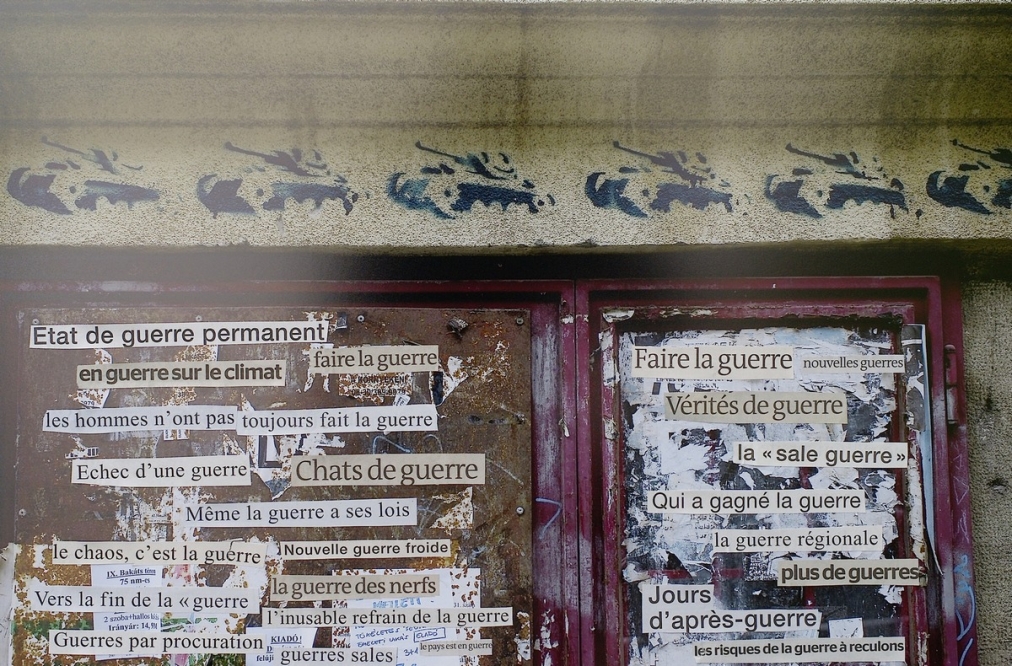 Etat de guerre permanent
faire la guerre
en guerre sur le climat
les hommes n'ont pas toujours fait la guerre
Echec d'une guerre
Chats de guerre
Même la guerre a ses lois
le chaos, c'est la guerre
Nouvelle guerre froide
IX. Bakáts téren
75 nm-es
la guerre des nerfs
Vers la fin de la « guerre
l'inusable refrain de la guerre
2 szoba+hallos
Irányár: 14,9
Guerres par procuration
KIADÓ!
ELADÓ
guerres sales
le pays est en guerre
Faire la guerre
nouvelles guerres
Vérités de guerre
la « sale guerre »
Qui a gagné la guerre
la guerre régionale
plus de guerres
Jours
d'après-guerre
les risques de la guerre à reculons